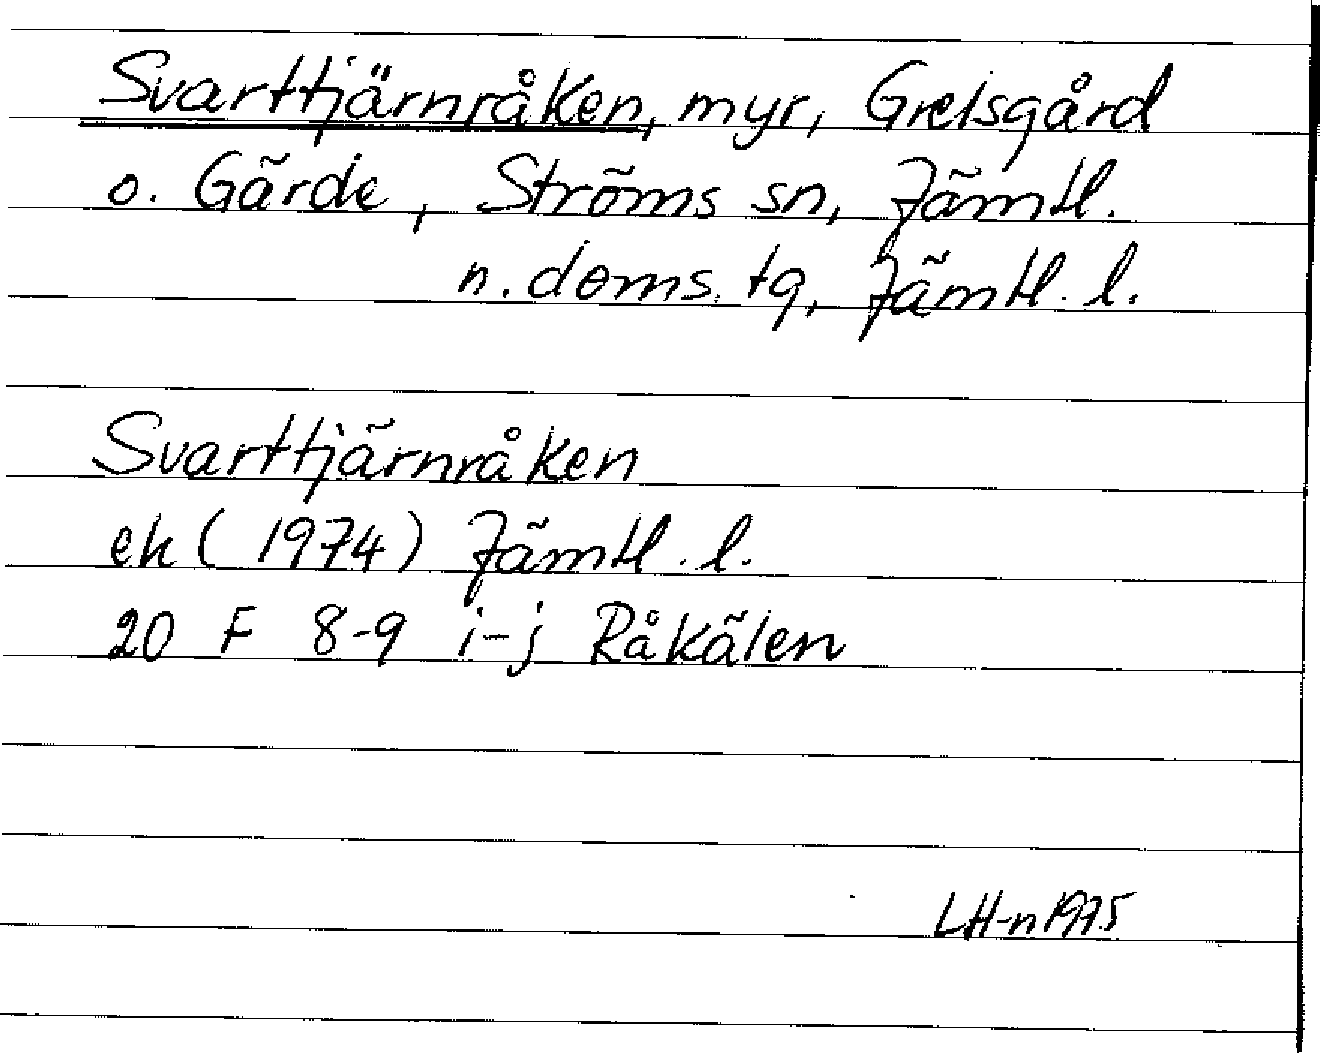 Svarttjärnråken, myr, Grelsgård
o. Gärde, Ströms sn, Jämtl.
n. doms. tg, Jämtl. l.
Svarttjärnråken
ek (1974) Jämtl. l.
20 F 8-9 i-j Råkälen
LH-n 1975